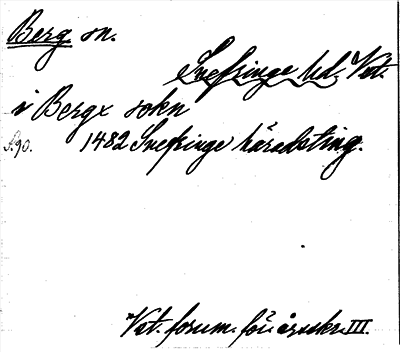 Berg sn.
Snefringe hd. Vst.
i Bergx sokn
A 90. 1482 Snefringe häradsting.
Vst. fornm. för: årsskr. III.